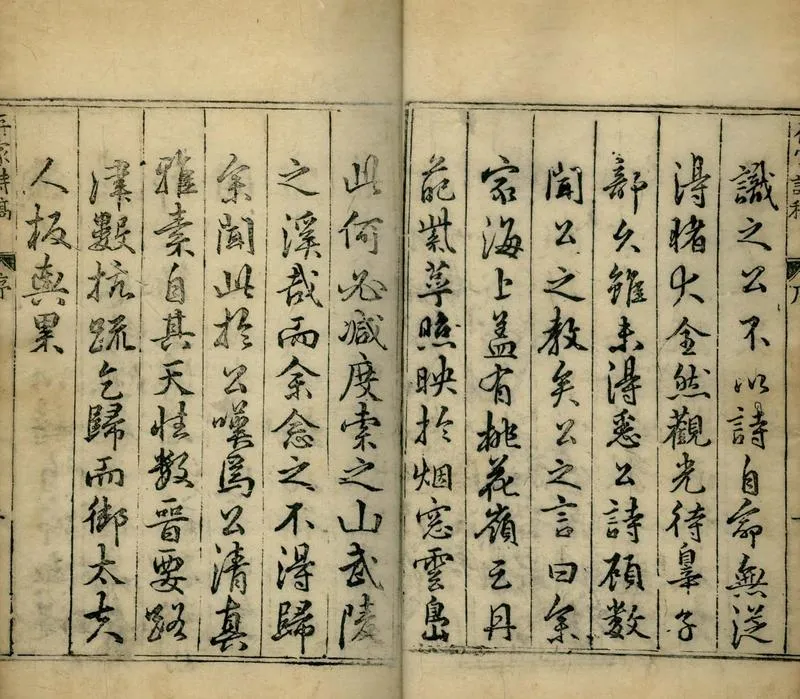 識之公不以詩自命無從
得睹大全然觀光待辠子
部久雖未得悉公詩顧數
聞公之教矣公之言曰余
家海上蓋有桃花嶺之丹
葩紫萼照映於烟窓雲島
此何必減度索之山武陵
之溪哉而余念之不得歸
余聞此於公嘆為公清真
雅素自其天性數晉要路
津數抗疏乞歸而御太夫
人板輿累
詩稿
序